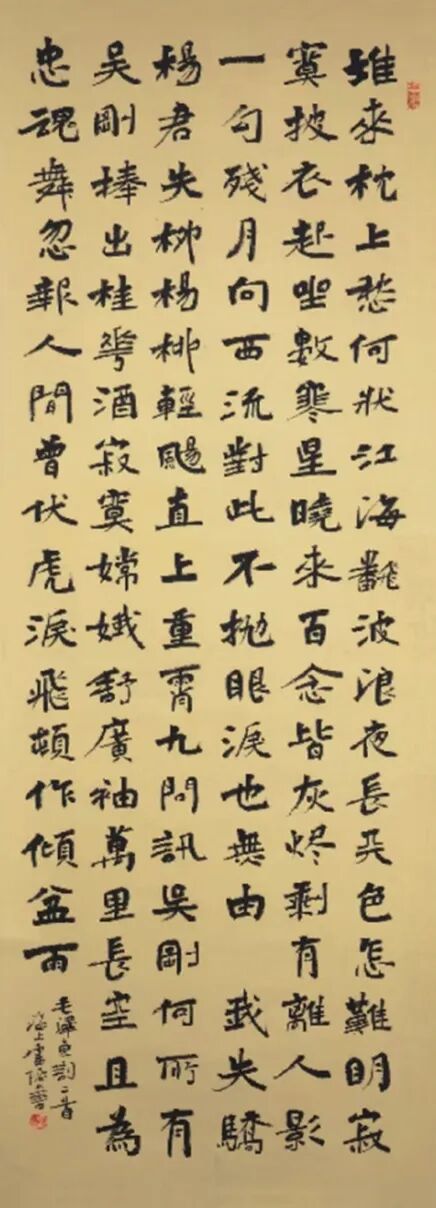 堆來枕上愁何狀江海翻波浪夜長天色怎難明寂
寞披衣起坐數寒星曉來百念皆灰烬剩有離人影
一勾殘月向西流對此不抛眼淚也無由 我失驕
楊君失柳楊柳輕颺直上重霄九問訊吳剛何所有
吳剛捧出桂花酒寂寞嫦娥舒廣袖萬里長空且為
忠魂舞忽報人間曾伏虎淚飛頓作傾盆雨
毛澤東詞二首
海上